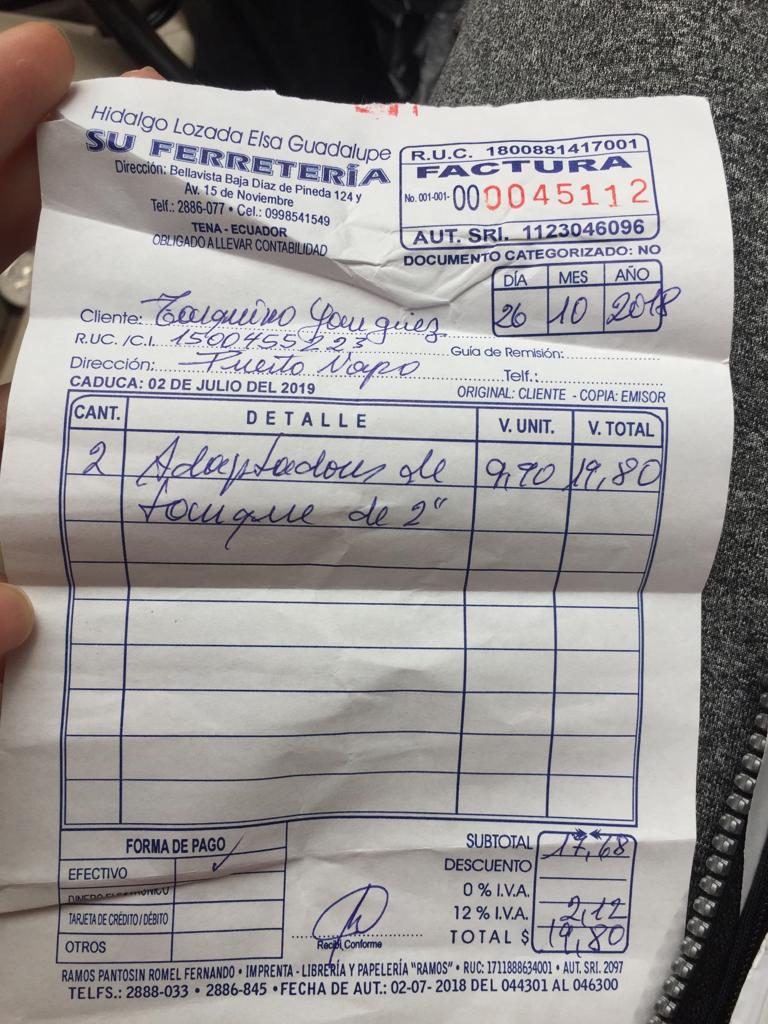 Hidalgo Lozada Elsa Guadalupe
SU FERRETERÍA
Dirección: Bellavista Baja Diaz de Pineda 124 y
Av. 15 de Noviembre
Telf.: 2886-077 • Cel.: 0998541549
TENA - ECUADOR
OBLIGADO A LLEVAR CONTABILIDAD
R.U.C. 1800881417001
FACTURA
No. 001-001- 000045112
AUT. SRI. 1123046096
DOCUMENTO CATEGORIZADO: NO
DÍA MES AÑO
26 10 2018
Cliente: Tarquino
R.U.C. /C.I. 1500455223 Guía de Remisión:
Dirección: Puerto Napo Telf.:
CADUCA: 02 DE JULIO DEL 2019 ORIGINAL: CLIENTE - COPIA: EMISOR
CANT. DETALLE V. UNIT. V. TOTAL
2 Adaptadores de 9,90 19,80
tanque de 2"
FORMA DE PAGO
EFECTIVO ✓
DINERO ELECTRÓNICO
TARJETA DE CRÉDITO / DÉBITO
OTROS
Recibí Conforme
SUBTOTAL 17,68
DESCUENTO
0 % I.V.A.
12 % I.V.A. 2,12
TOTAL $ 19,80
RAMOS PANTOSIN ROMEL FERNANDO • IMPRENTA - LIBRERÍA Y PAPELERÍA "RAMOS" • RUC: 1711888634001 • AUT. SRI. 2097
TELFS.: 2888-033 • 2886-845 • FECHA DE AUT.: 02-07- 2018 DEL 044301 AL 046300